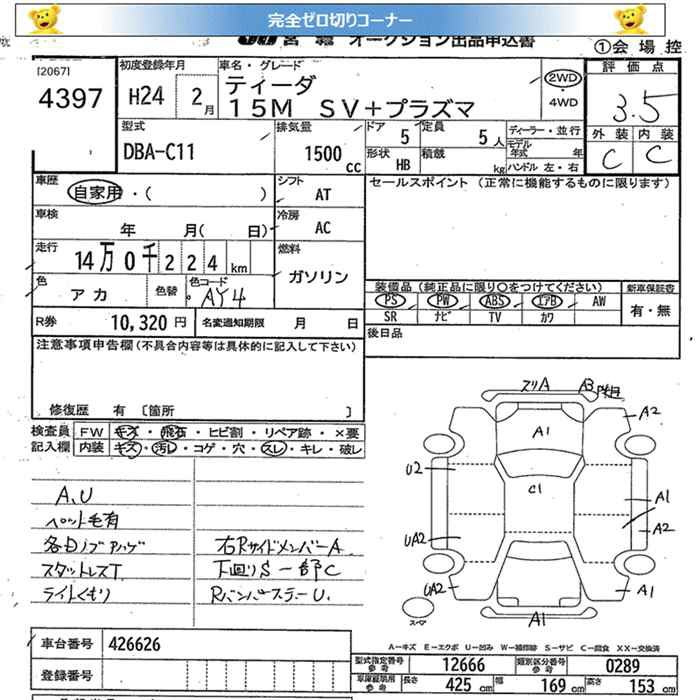 完全ゼロ切りコーナー
オークション出品申込書
①会 場 控
[2067]
4397
初度登録年月
H24 2月
車名・グレード
ティーダ
15M SV+プラズマ
2WD
・
4WD
評 価 点
3.5
外 装 内 装
C C
型式
DBA-C11
排気量
1500 CC
ドア 5
定員 5人
ディーラー・並行
モデル年式 年
形状 HB
積載 kg
ハンドル 左・右
車歴
自家用・( )
シフト
AT
セールスポイント (正常に機能するものに限ります)
車検
年 月( 日)
冷房
AC
走行
14万0千224km
燃料
ガソリン
色
アカ
色替
色コード
AY4
装備品(純正品に限り○をつけてください)
新車保証書
PS PW ABS エアB AW
SR ナビ TV カワ
有・無
R券 10,320円
名変通知期限 月 日
後日品
注意事項申告欄(不具合内容等は具体的に記入して下さい)
修復歴 有 〔箇所 〕
検査員 FW キズ・飛石・ヒビ割・リペア跡・×要
記入欄 内装 キズ・汚レ・コゲ・穴・スレ・キレ・破レ
A、U
ペット毛有
各日ノブハゲ
スタットレスT
ライトくもり
右Rサイドメンバー A
下回りS 一部C
Rバンパーステー U.
スリA A3
A2
A1
U2
C1
A1
UA2
A2
UA2
A1
A1
スペア
A-キズ E-エクボ U-凹み W-補修跡 S-サビ C-腐食 XX-交換済
車台番号 426626
登録番号
型式指定番号参考 12666
類別区分番号参考 0289
車庫証明用参考
長さ 425 cm
幅 169 cm
高さ 153 cm